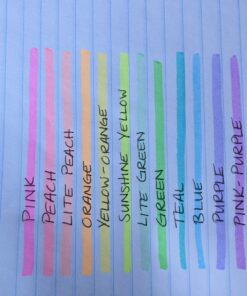 PINK
PEACH
LITE PEACH
ORANGE
YELLOW-ORANGE
SUNSHINE YELLOW
LITE GREEN
GREEN
TEAL
BLUE
PURPLE
PINK-PURPLE